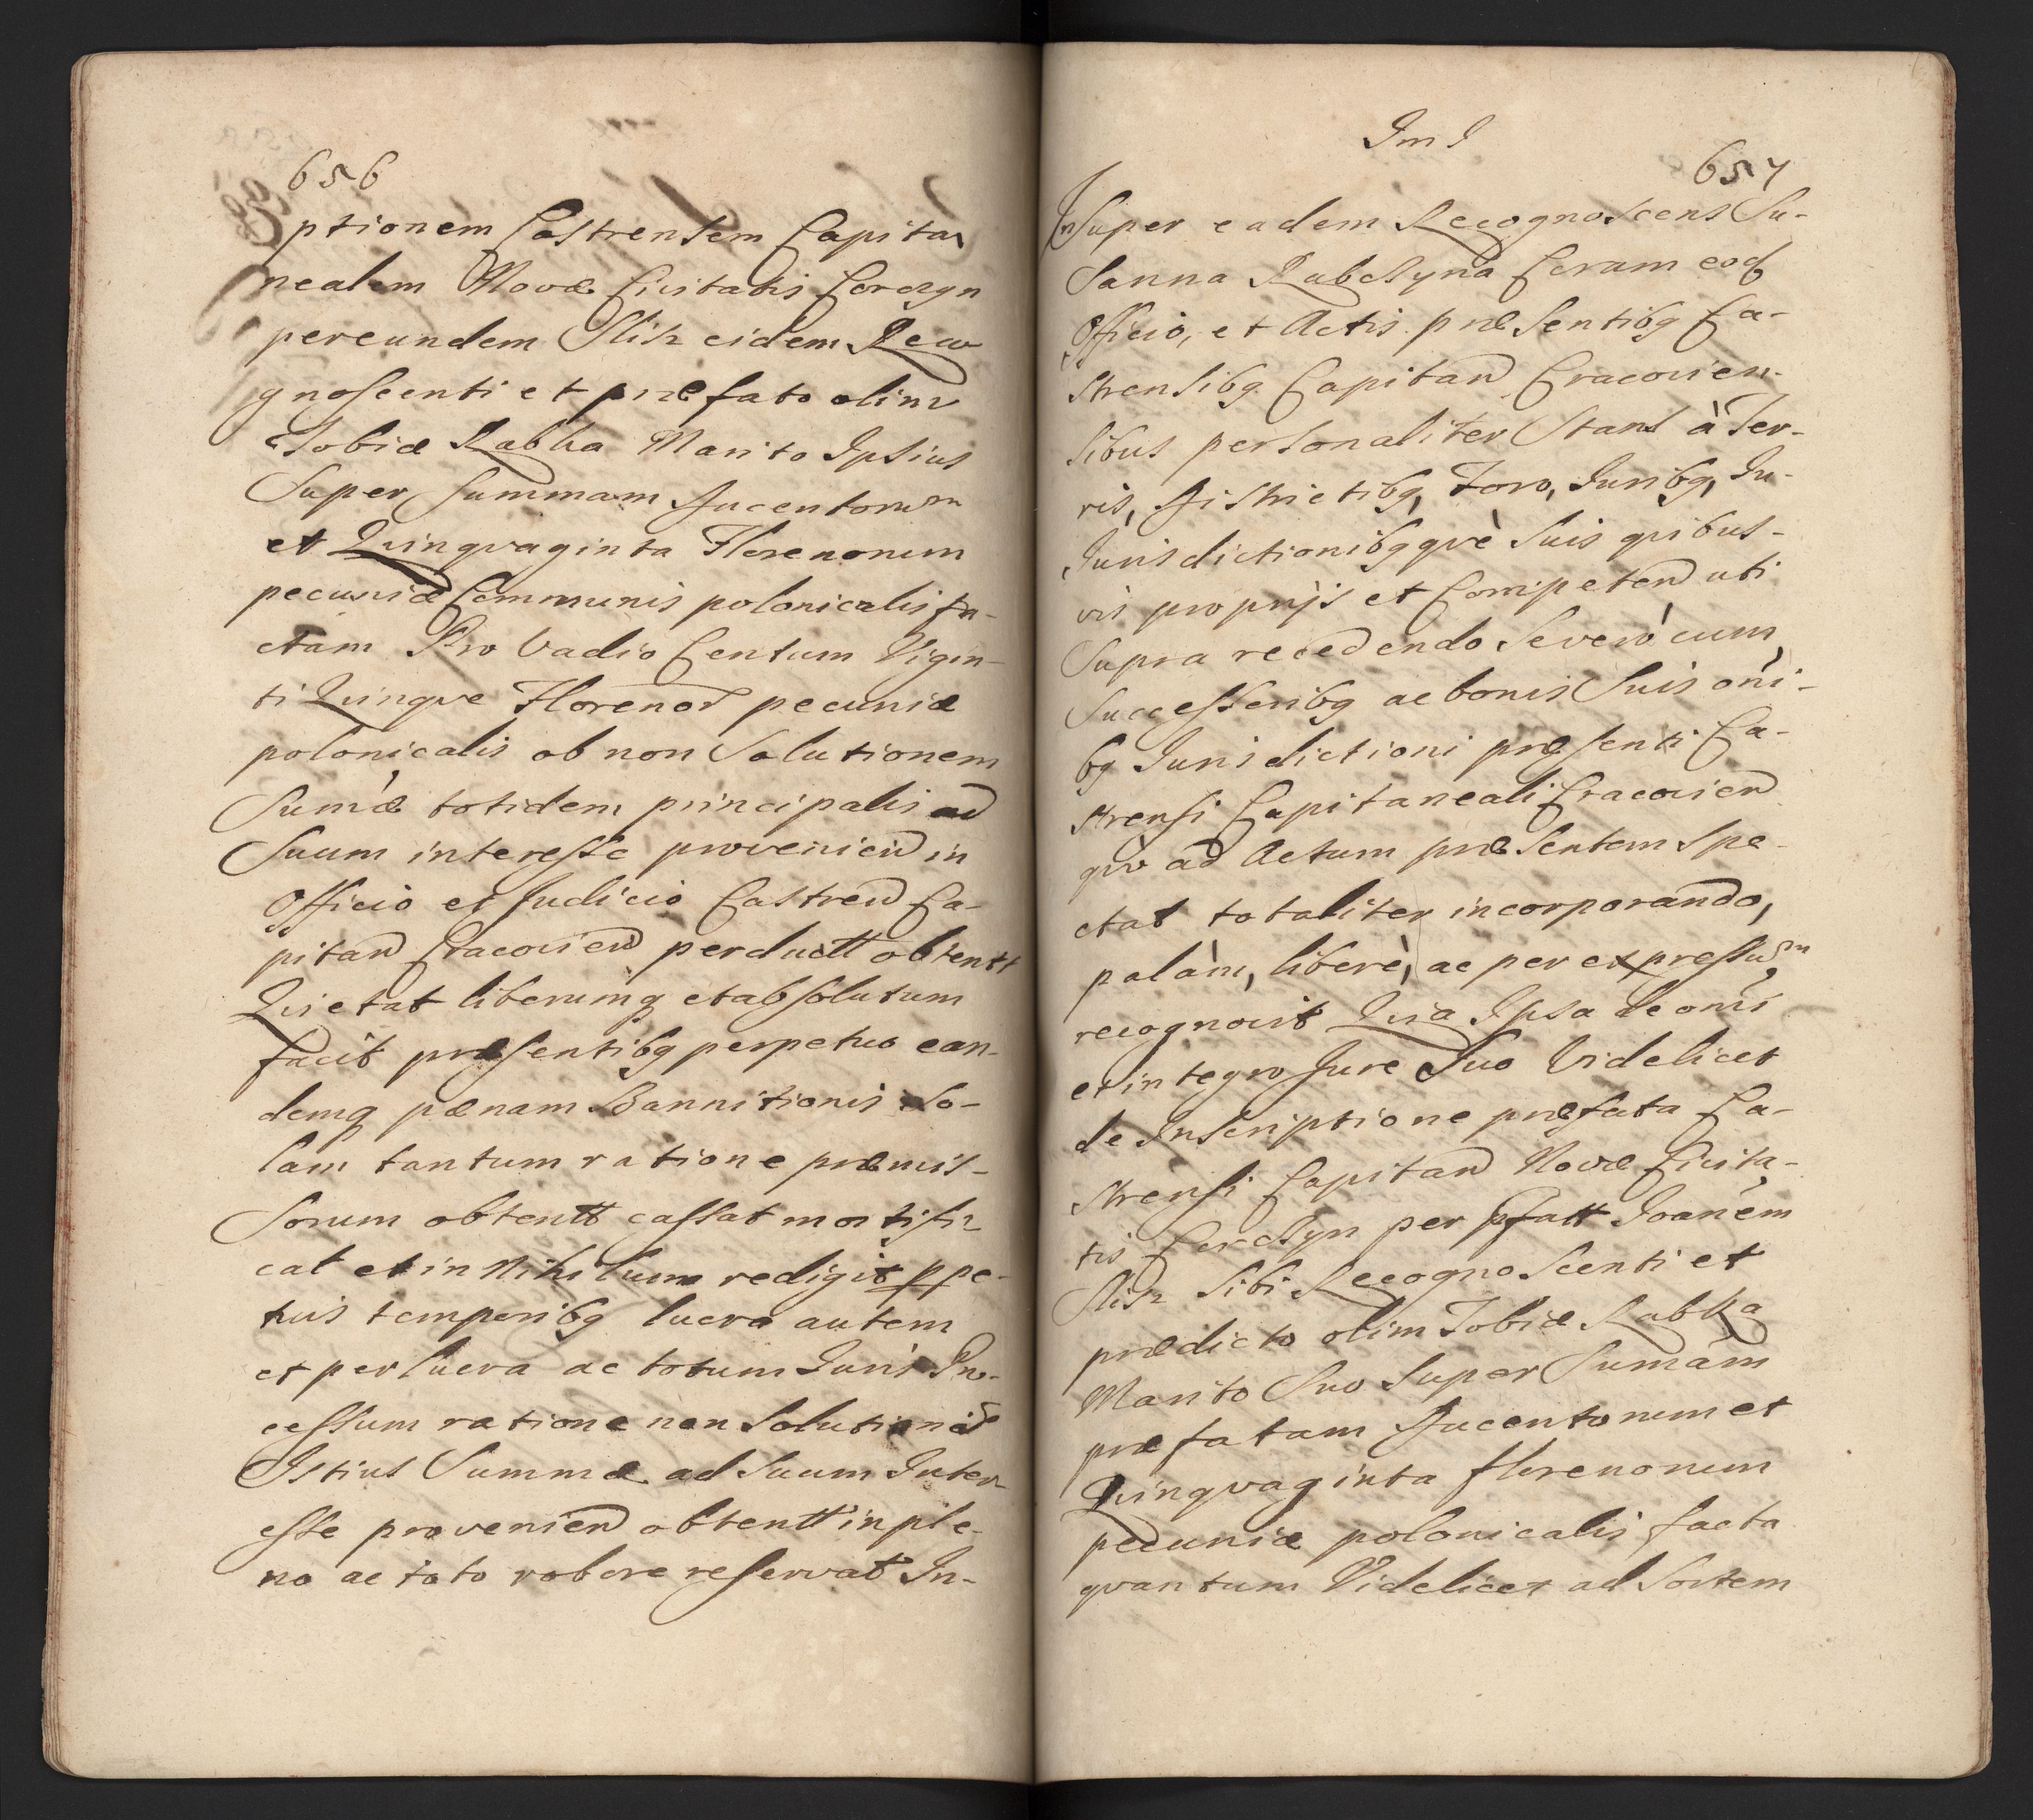 656
ptionem Castrensem Capita
nealem Novæ Civitatis Corczyn
per eundem Slisz eidem Reco
gnoscenti et præfato olim
Tobiæ Rabka Marito Ipsius
Super Summam ducentorum
et Quinqvaginta Florenorum
pecuniæ Communis polonicalis fa-
ctam Pro Vadio Centum Vigin-
ti Quinqve Florenor pecuniæ
polonicalis ob non Solutionem
Sumæ totidem principalis ad
Suum interesse provenien in
Officio et Judicio Castren Ca-
pitan Cracovien perductt obtentt
Quietat liberumq et absolutum
facit præsentibq perpetuo ean-
demq pænam Bannitionis So-
lam tantum ratione præmis-
Sorum obtentt cassat mortifi
cat et in Nihilum redigit ppe-
tuis temporibq lucra autem
et per lucra ac totum Juris Pro-
cessum ratione non Solutionis
Istius Summæ ad Suum Inter
esse provenien obtentt in ple-
no ac toto robore reservat In-
Im J
657
InSuper eadem Recognoscens Su-
Sanna Rabczyna Coram eod
Officio, et Actis præsentibq Ca-
strensibq Capitan Cracovien-
sibus personaliter Stans à Ter-
ris, districtibq, Foro, Juribq, Ju-
Jurisdictionibqqvè Suis qvibus-
vis proprijs et Competen uti
Supra recedendo Severò cum
Successoribq ac bonis Suis oni-
bq Jurisdictioni præsenti Ca-
strensi Capitaneali Cracovien
qvo ad Actum præsentem Spe-
ctat totaliter incorporando,
palàm, liberè, ac per expressum
recognovit Quia Ipsa de omi
et integro Jure Suo Videlicet
de Inscriptione præfata Ca-
strensi Capitan Novæ Civita-
tis Corczyn per pfatt Joanem
Slisz Sibi Recognoscenti et
prædicto olim Tobiæ Rabka
Marito Suo Super Sumam
præfatam ducentorum et
Quinqvaginta florenorum
pecuniæ polonicalis facta
qvantum Videlicet ad Sortem